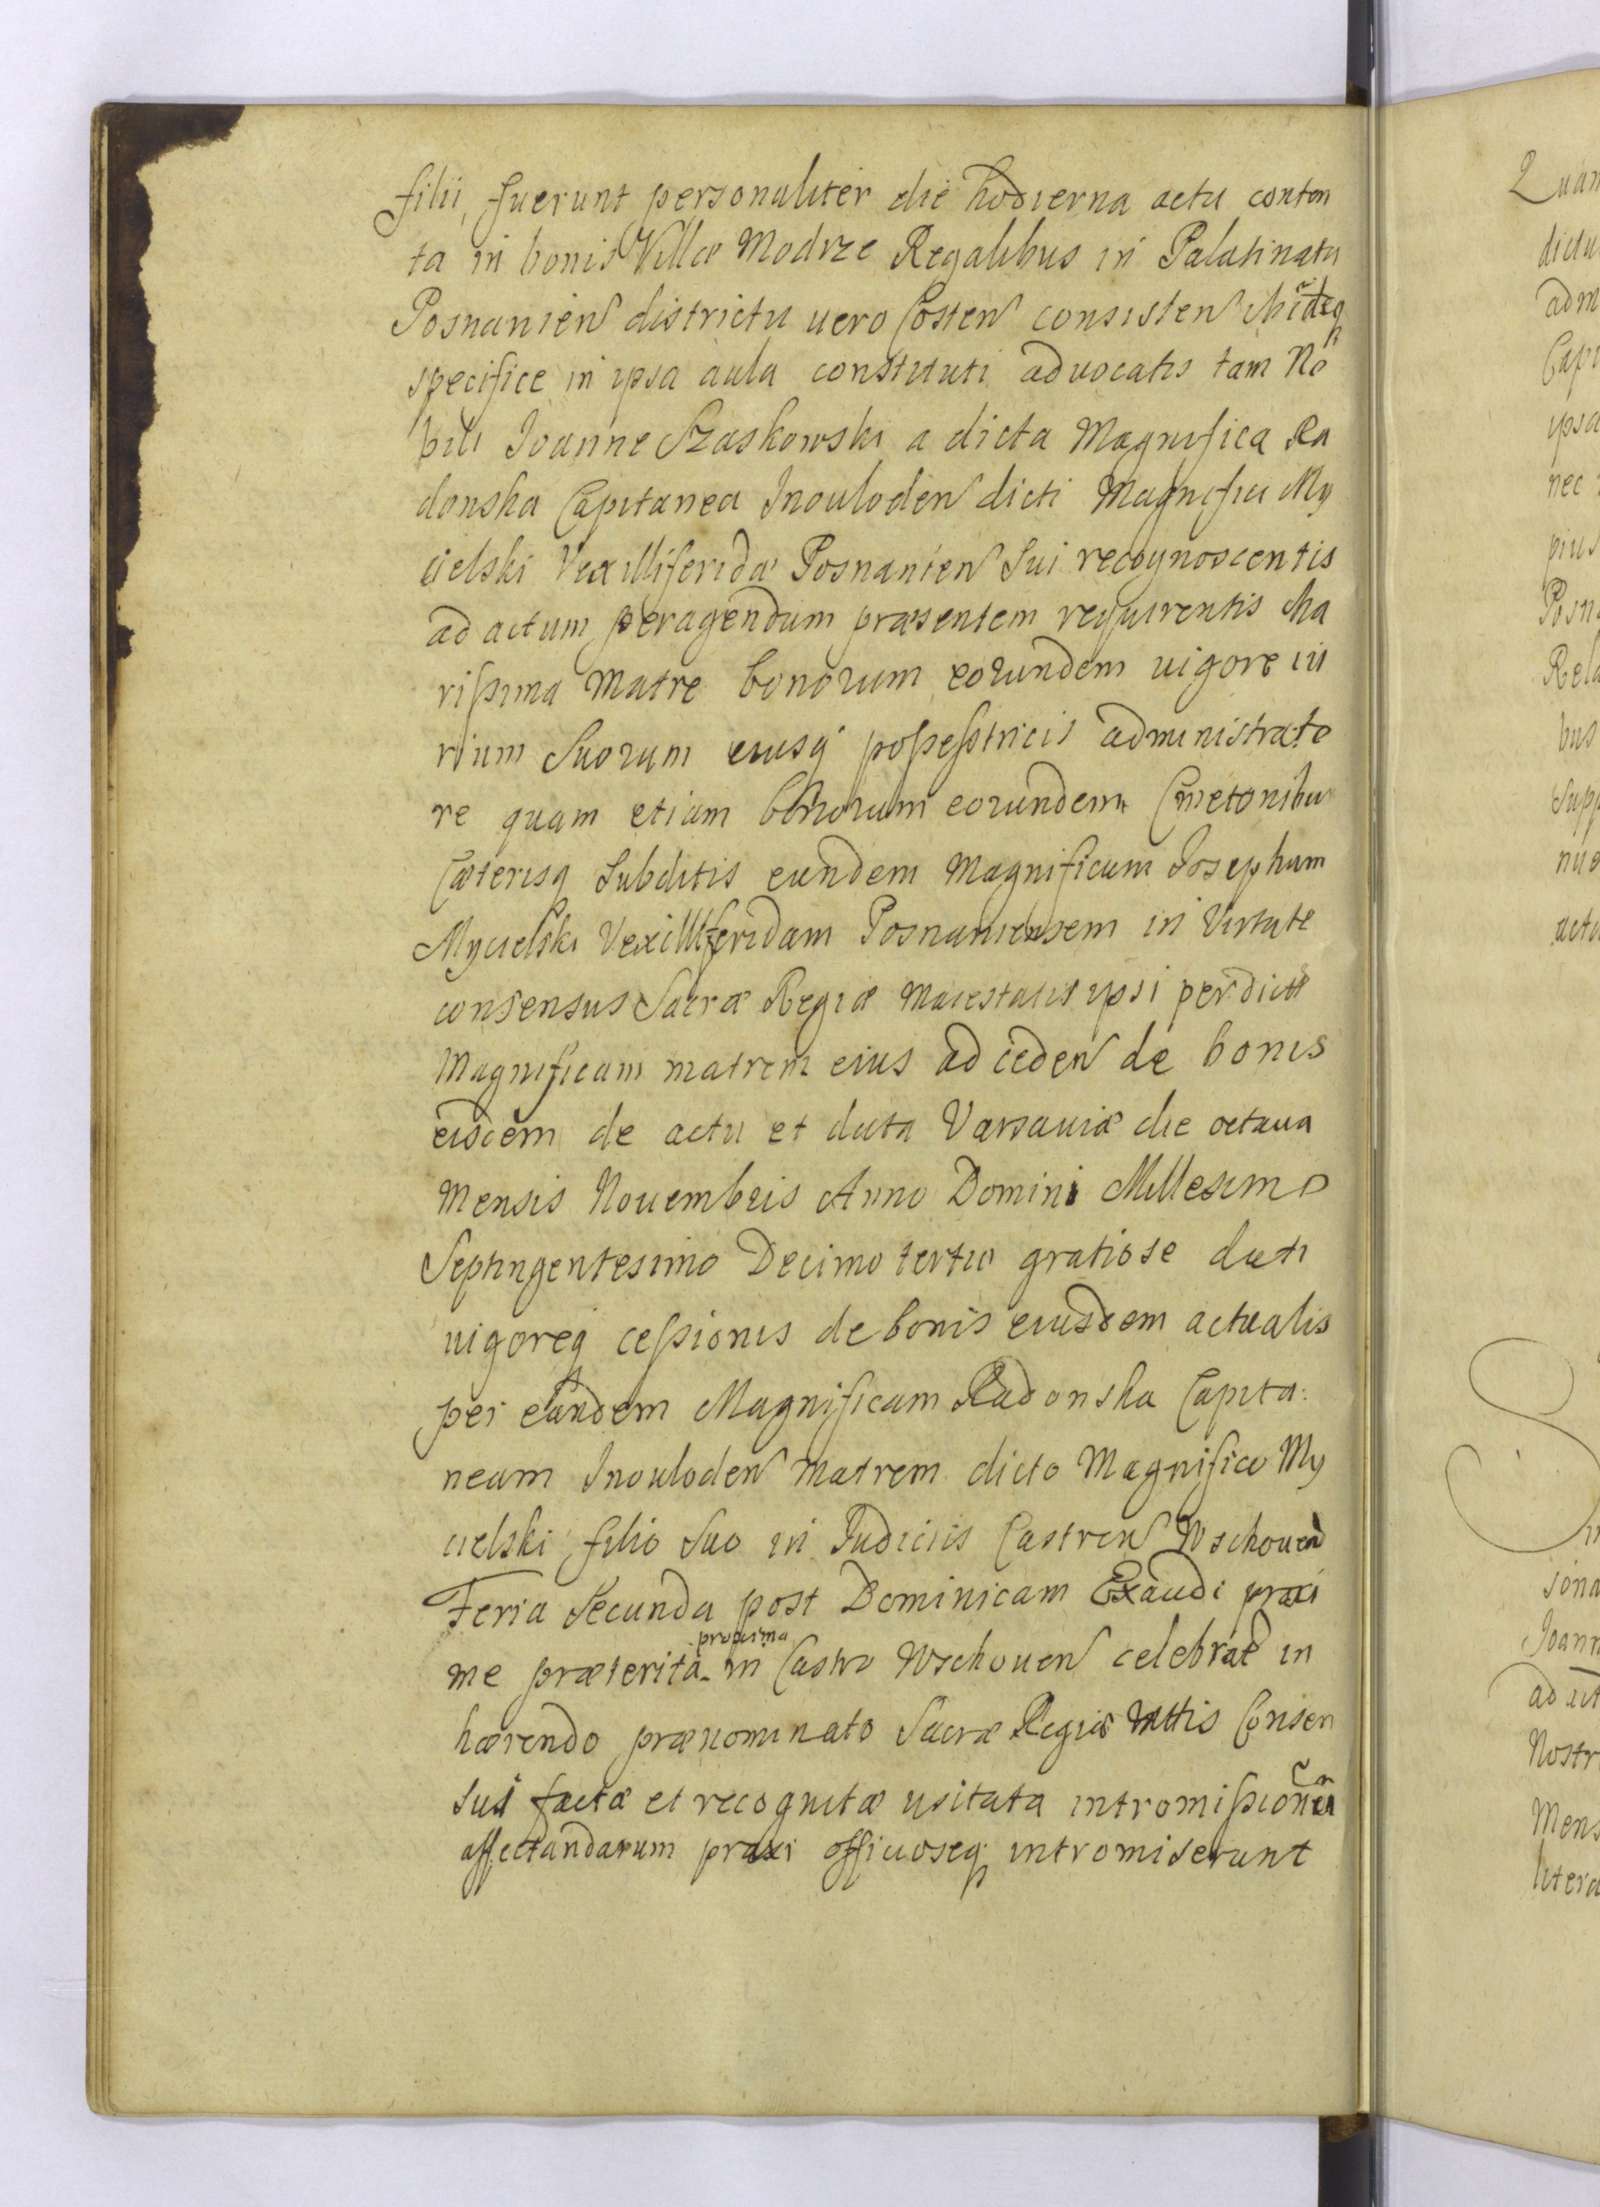 filii, fuerunt personaliter die hodierna actu conten
ta in bonis Villæ Modrze Regalibus in Palatinatu
Posnanien districtu uero Costen consisten ibideq
specifice in ipsa aula constituti aduocatis tam No
bili Joanne Szaskowski a dicta Magnifica Ra
donska Capitanea Inouloden dicti Magnifici My
cielski Vexilliferidæ Posnanien Sui recognoscentis
ad actum peragendum præsentem requirentis cha
rissima Matre bonorum eorundem uigore iu
rium Suorum eiusq possesstricis administrato
re quam etiam bonorum eorundem Cmetonibus
Cæterisq Subditis eundem Magnificum Josephum
Mycielski Vexilliferidam Posnaniensem in Virtute
consensus Sacræ Regiæ Maiestatis ipsi per dictã
Magnificam matrem eius ad ceden de bonis
eisdem de actu et data Varsauiæ die octaua
Mensis Nouembris Anno Domini Millesimo
Septingentesimo Decimo tertio gratiose dati
uigoreq cessionis de bonis eiusdem actualis
per eandem Magnificam Radonska Capita:
neam Inouloden Matrem dicto Magnifico My
cielski filio Suo in Judiciis Castren Wschouen
Feria Secunda post Dominicam Exaudi proxi
me præterita proxima in Castro Wschouen celebrat in
hærendo prænominato Sacræ Regiæ Mttis Consen
sui factæ et recognitæ usitata intromissionũ
affectandarum praxi officioseq intromiserunt